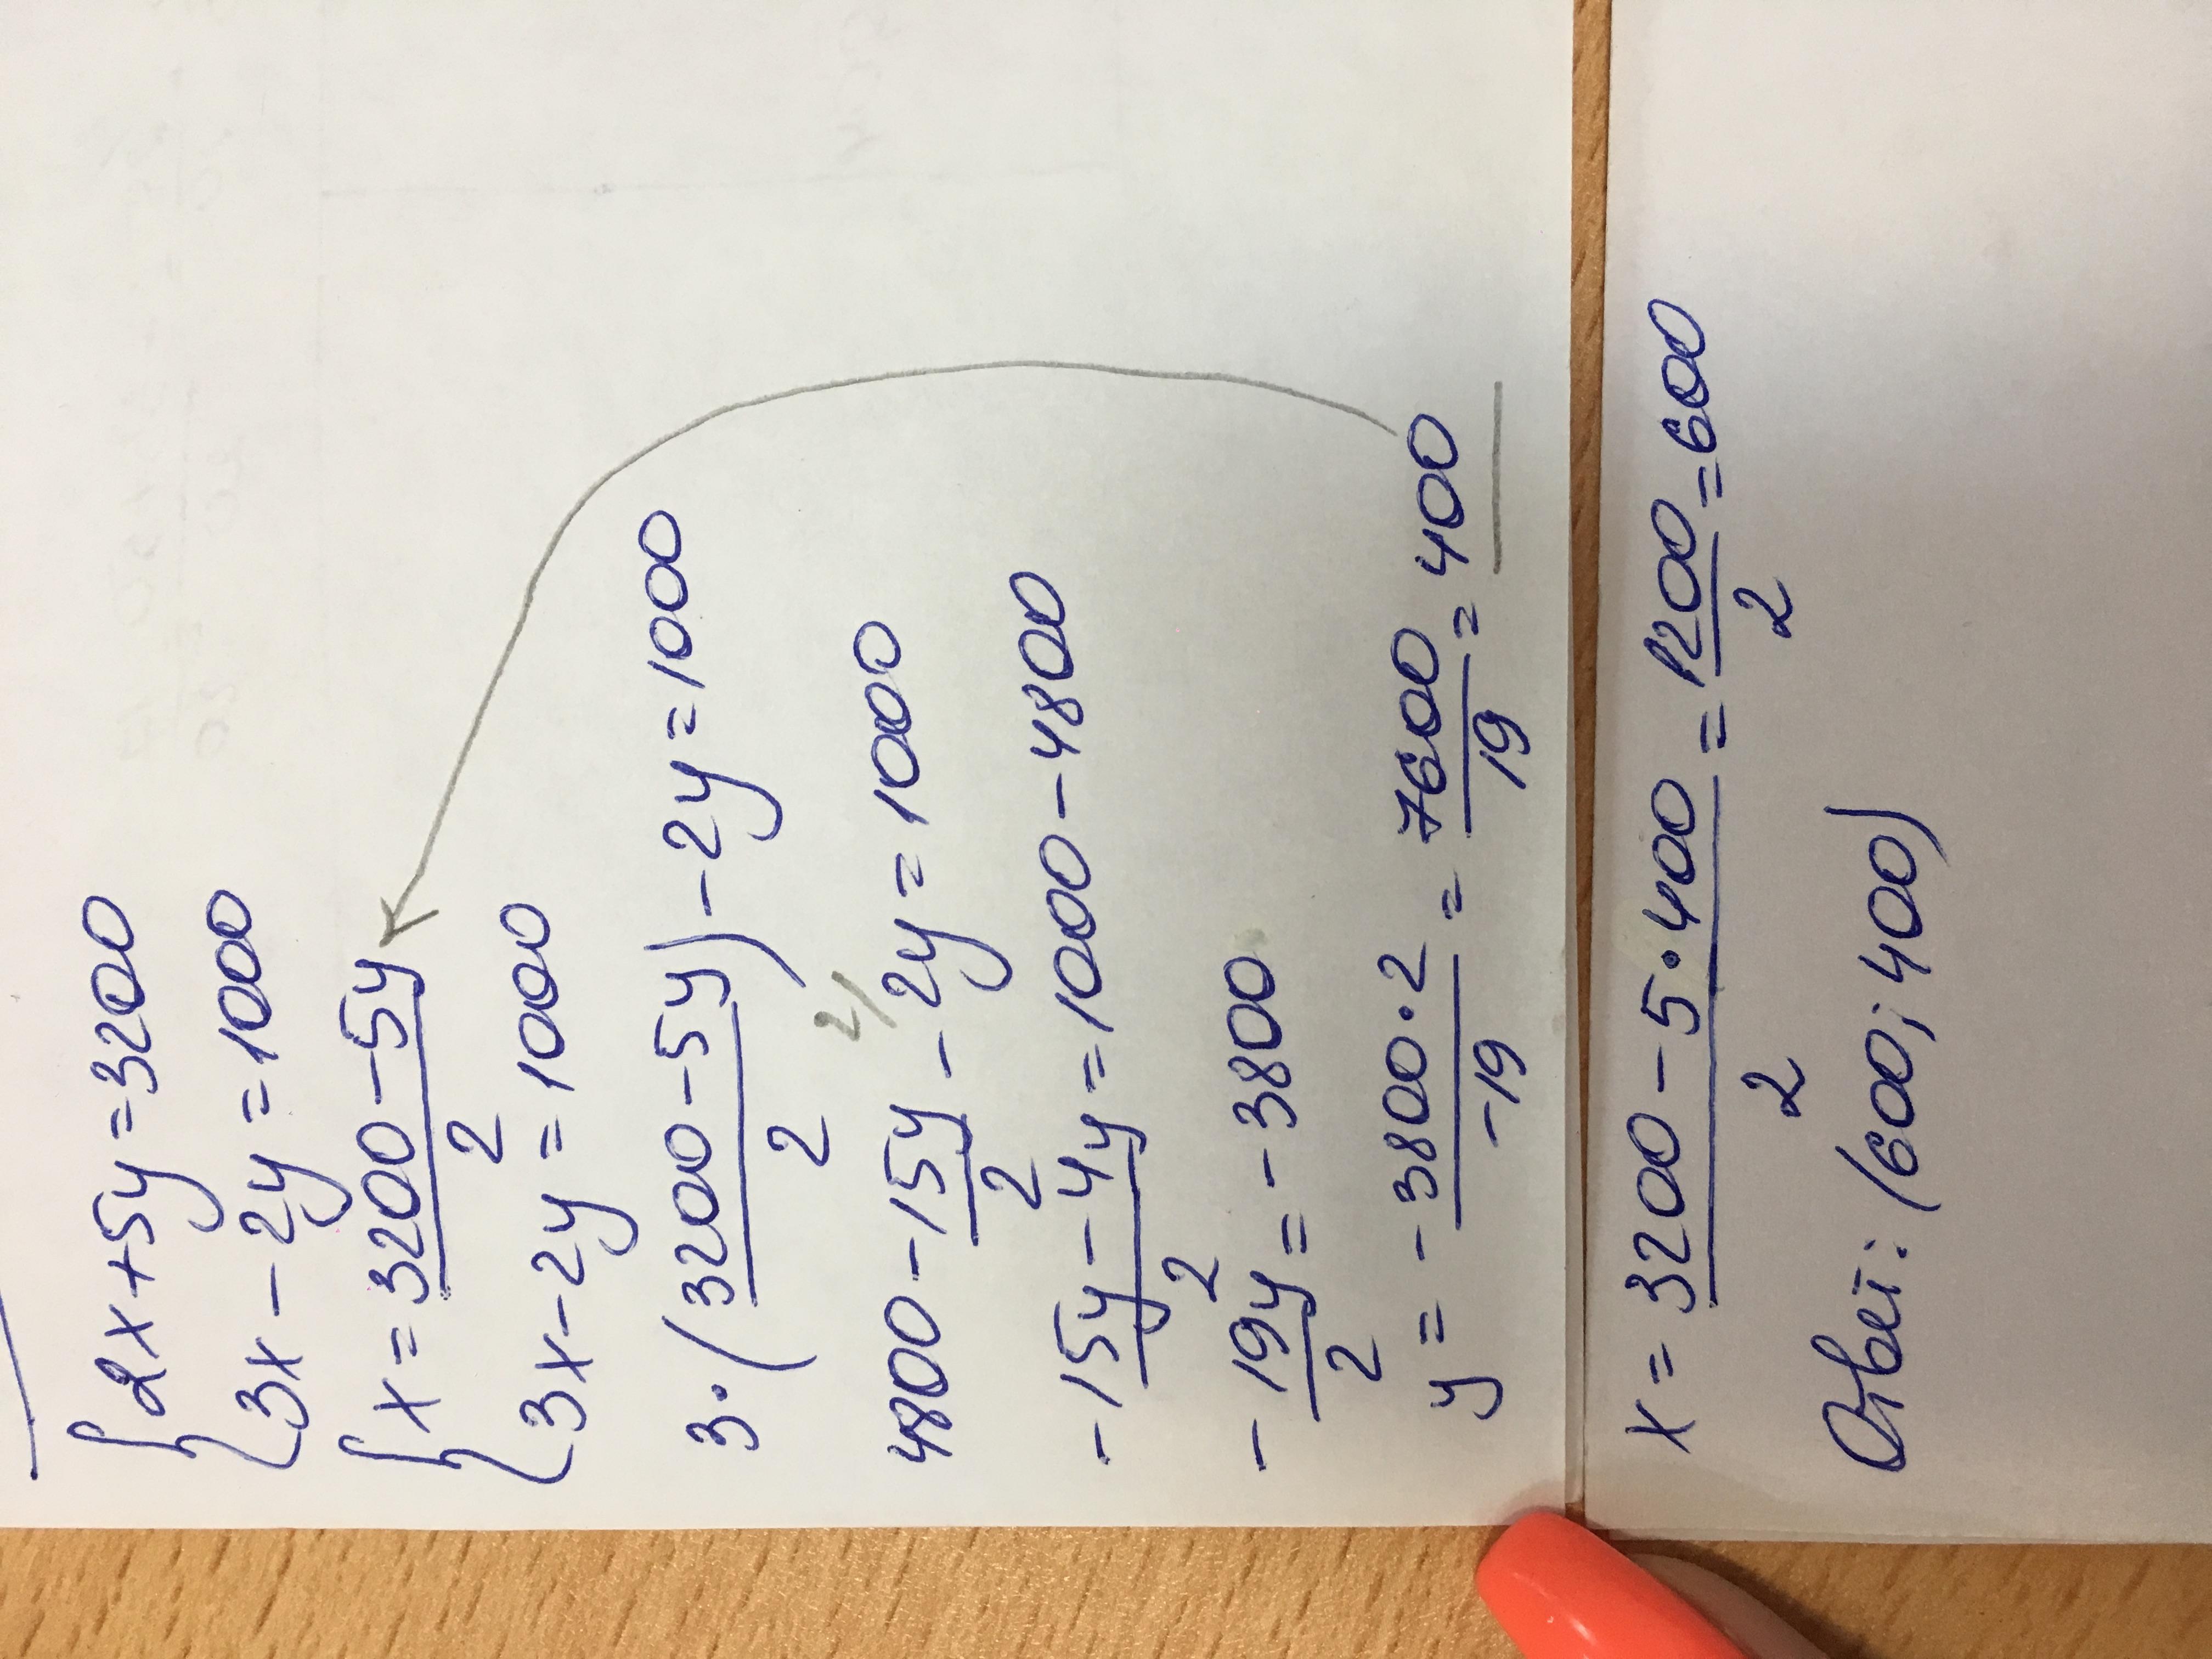 {2x+5y=3200
{3x-2y=1000
{x=(3200-5y)/2
{3x-2y=1000
3·((3200-5y)/2)-2y=1000
4800-15y/2-2y=1000
2/
(-15y-4y)/2=1000-4800
-19y/2=-3800
y=-(3800·2)/-19=7600/19=400
x=(3200-5·400)/2=1200/2=600
Ответ: (600; 400)